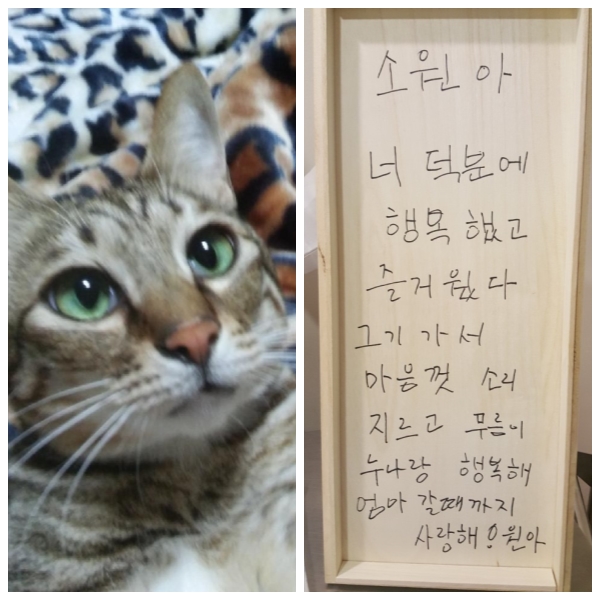 소원아
너 덕분에
행복했고
즐거웠다
그기 가서
마음껏 소리
지르고 푸름이
누나랑 행복해
엄마 갈때까지
사랑해 소원아